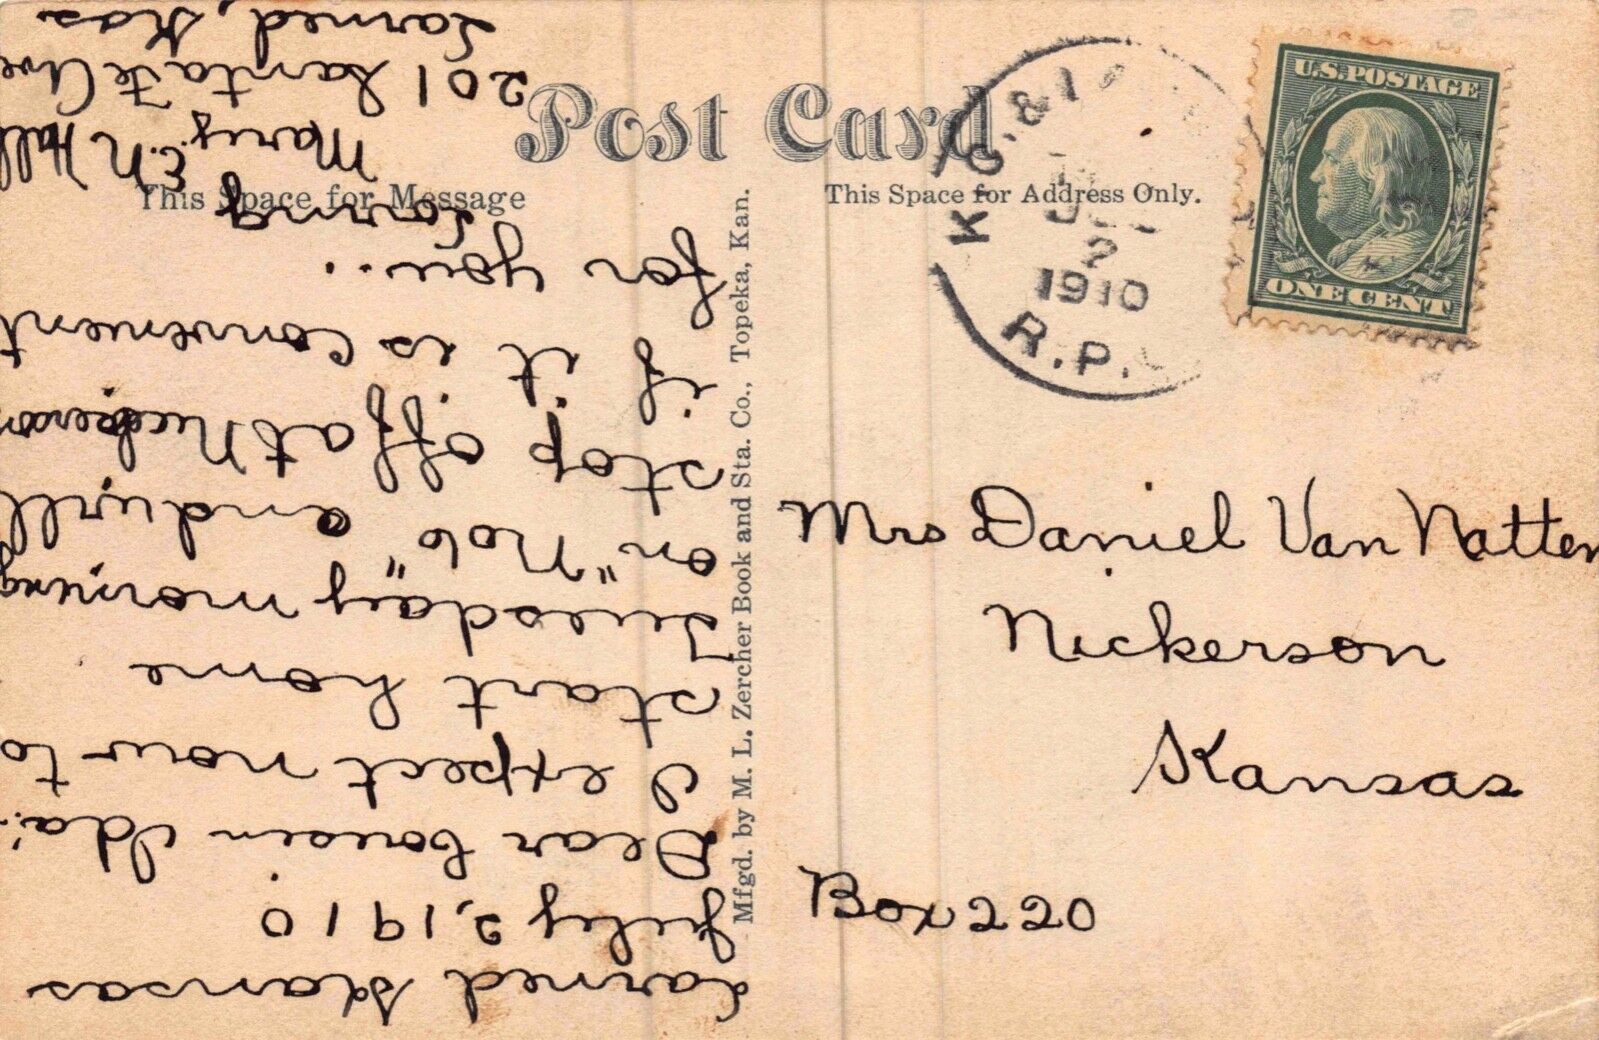 Post Card
This Space for Message
This Space for Address Only.
U.S. POSTAGE
ONE CENT
K.C. & LA
2
1910
R.P.
Mfgd. by M. L. Zercher Book and Sta. Co., Topeka, Kan.
Larned Kansas
July 2, 1910
Dear Cousin Ida:
I expect now to
start home
Tuesday morning
on "No 6" and will
stop off at Nickerson
if it is convenient
for you...
Mary E. N. Hall
201 Santa Fe Ave
Larned, Kas
Mrs Daniel Van Natten
Nickerson
Kansas
Box 220